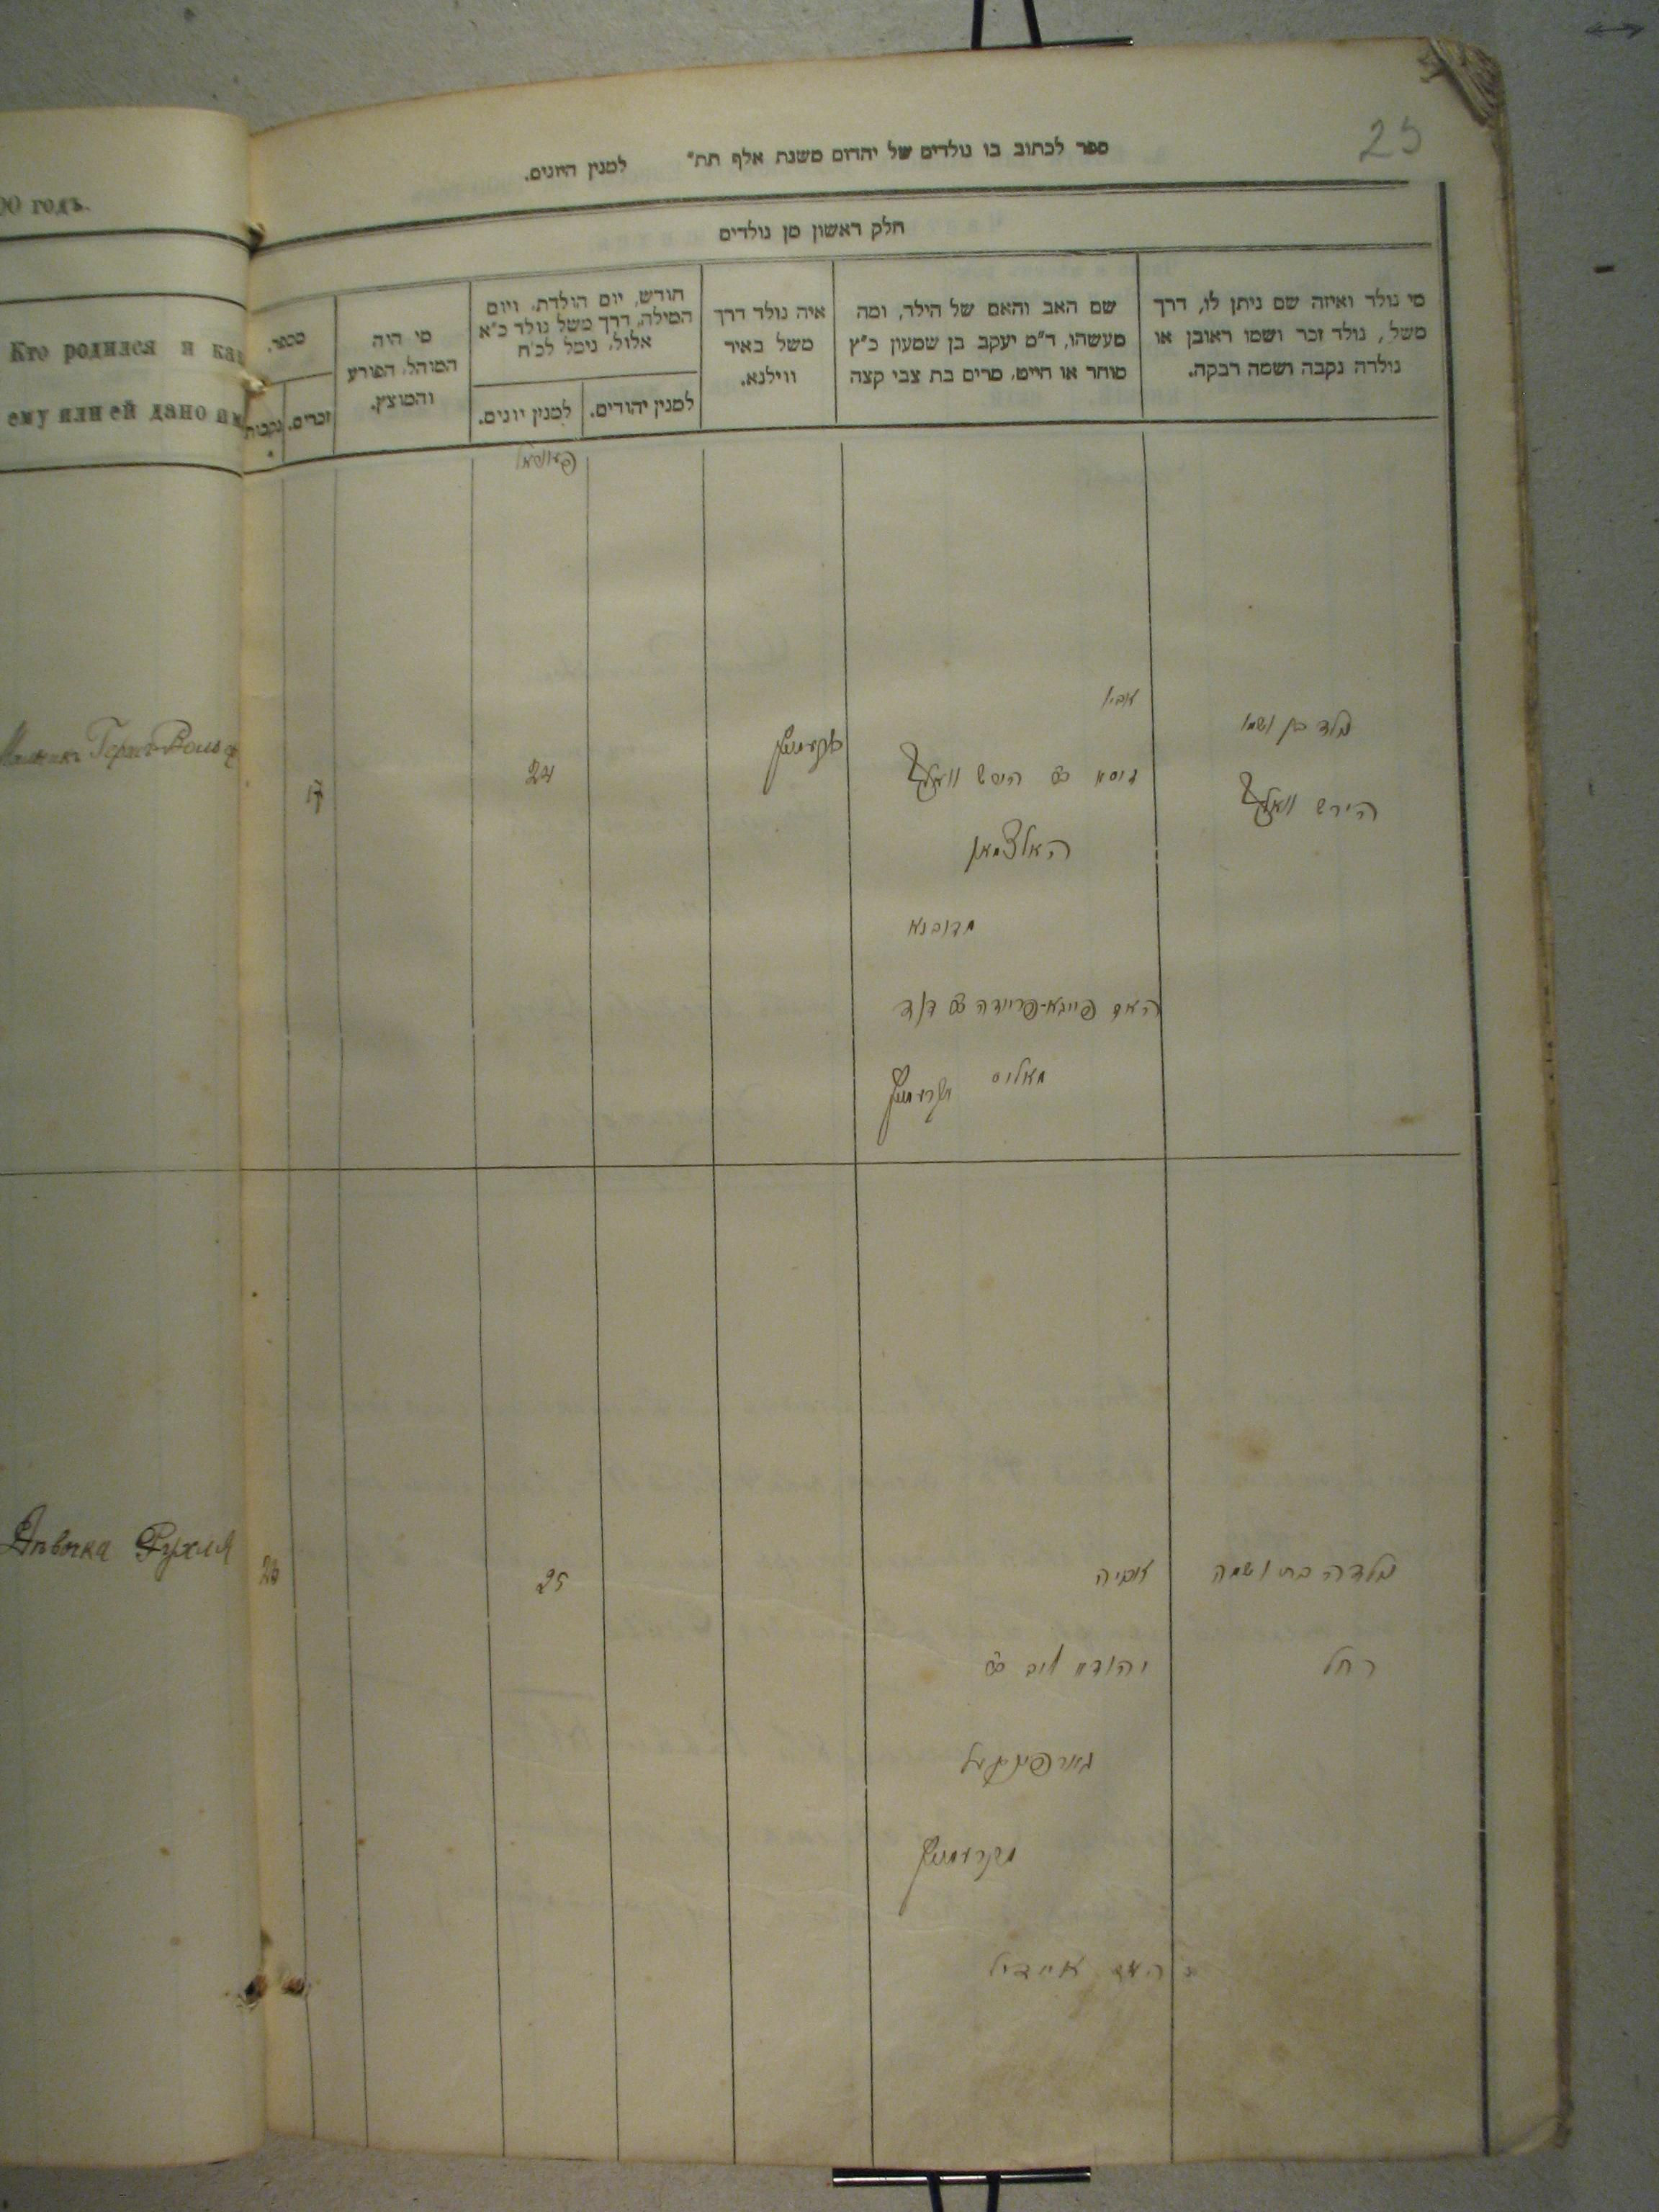 25
ספר לכתוב בו נולדים של יהדום משנת אלף תת״ למנין היונים.
חלק ראשון מן נולדים
מי נולד ואיזה שם ניתן לו, דרך
משל, נולד זכר ושמו ראובן או
נולדה נקבה ושמה רבקה.
שם האב והאם של הילד, ומה
מעשהו, ד״מ יעקב בן שמעון כ״ץ
סוחר או חייט, מרים בת צבי קצה
איה נולד דרך
משל באיר
ווילנא.
חודש, יום הולדת, ויום
המילה, דרך משל נולד כ״א
אלול, נימל לכ״ח
למנין יהודים.
למנין יונים.
מי היה
המוהל, הפורע
והמוצץ.
מספר.
זכרים.
נקבות
נולד בן ושמו
הירש וואלף
אביו
הירש וואלף
האלצמאן
מדובנא
האם פייגא-פריידה דוד
24
17
נולדה בת ושמה
רחל
אביה
יהודא ליב
גארפינקעל
האם איידיל
25
00 годъ.
Кто родился и как
ему или ей дано им
Герш Вольф
Девочка Рухля